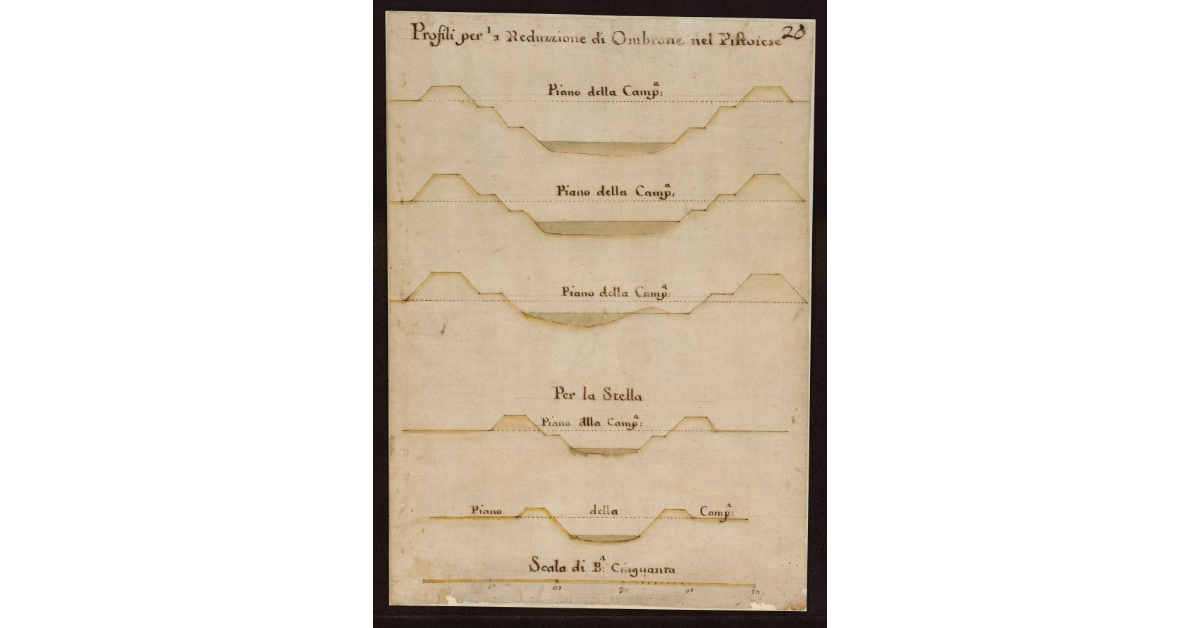 Profili per la Reduzzione di Ombrone nel Pistoiese 20
Piano della Camp.ª:
Piano della Camp.ª:
Piano della Camp.ª:
Per la Stella
Piano dlla Camp.ª:
Piano della Camp.ª:
Scala di B.ª Cinquanta
10 20 30 40 50